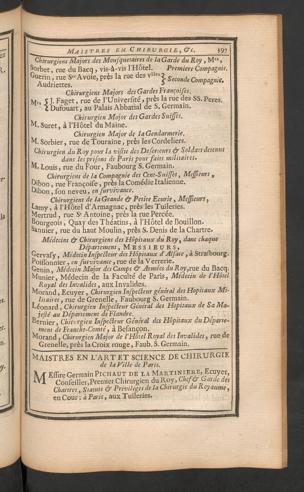 MAISTRES EN CHIRURGIE, &c. 397
Chirurgiens Majors des Mousquetaires de la Garde du Roy, Mrs,
Sorbet, rue du Bacq, vis-à-vis l'Hôtel. Premiere Compagnie.
Guerin, rue Ste Avoie, près la rue des vieilles
Audriettes. } Seconde Compagnie.
Chirurgiens Majors des Gardes Françoises,
Mrs { J. Faget, rue de l'Université, près la rue des SS. Peres.
Dufouart, au Palais Abbatial de S. Germain.
Chirurgien Major des Gardes Suisses.
M. Suret, à l'Hôtel du Maine.
Chirurgien Major de la Gendarmerie.
M. Sorbier, rue de Touraine, près les Cordeliers.
Chirurgien du Roy pour la visite des Deserteurs & Soldats detenus
dans les prisons de Paris pour faits militaires.
M. Louis, rue du Four, Faubourg S. Germain.
Chirurgiens de la Compagnie des Cent-Suisses, Messieurs,
Dibon, rue Françoise, près la Comédie Italienne.
Dibon, son neveu, en survivance.
Chirurgiens de la Grande & Petite Ecurie, Messieurs,
Lamy, à l'Hôtel d'Armagnac, près les Tuileries.
Mertrud, rue St Antoine, près la rue Percée.
Bourgeois, Quay des Théatins, à l'Hôtel de Bouillon.
Saunier, rue du haut Moulin, près S. Denis de la Chartre.
Médecins & Chirurgiens des Hôpitaux du Roy, dans chaque
Département, MESSIEURS,
Gervasy, Médecin Inspecteur des Hôpitaux d'Alsace, à Strasbourg.
Poissonnier, en survivance, rue de la Verrerie.
Genin, Médecin Major des Camps & Armées du Roy, rue du Bacq.
Munier, Médecin de la Faculté de Paris, Médecin de l'Hôtel
Royal des Invalides, aux Invalides.
Morand, Ecuyer, Chirurgien Inspecteur général des Hôpitaux Militaires,
rue de Grenelle, Faubourg S. Germain.
Léonard, Chirurgien Inspecteur Général des Hôpitaux de Sa Majesté
au Département de Flandre.
Bernier, Chirurgien Inspecteur Général des Hôpitaux du Département
de Franche-Comté, à Besançon.
Morand, Chirurgien Major de l'Hôtel Royal des Invalides, rue de
Grenelle, près la Croix rouge, Faub. S. Germain.
MAISTRES EN L'ART ET SCIENCE DE CHIRURGIE
de la Ville de Paris.
MEssire Germain PICHAUT DE LA MARTINIERE, Ecuyer,
Conseiller, Premier Chirurgien du Roy, Chef & Garde des
Chartres, Statuts & Privileges de la Chirurgie du Royaume,
en Cour: à Paris, aux Tuileries.